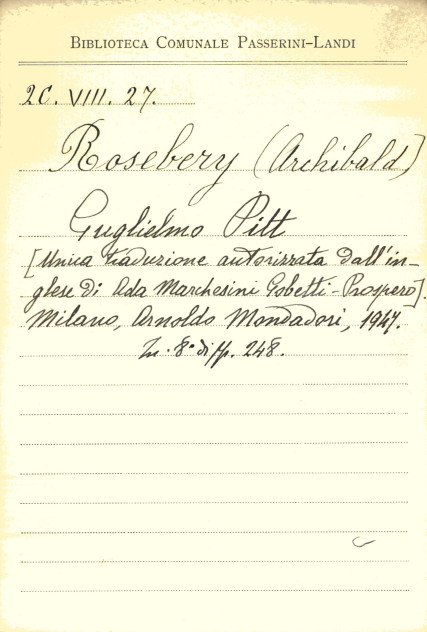 BIBLIOTECA COMUNALE PASSERINI-LANDI
2C. VIII. 27.
Rosebery (Archibald)
Guglielmo Pitt
[Unica traduzione autorizzata dall'in-
glese di Ada Marchesini Gobetti-Prospero].
Milano, Arnoldo Mondadori, 1947.
In-8° di pp. 248.